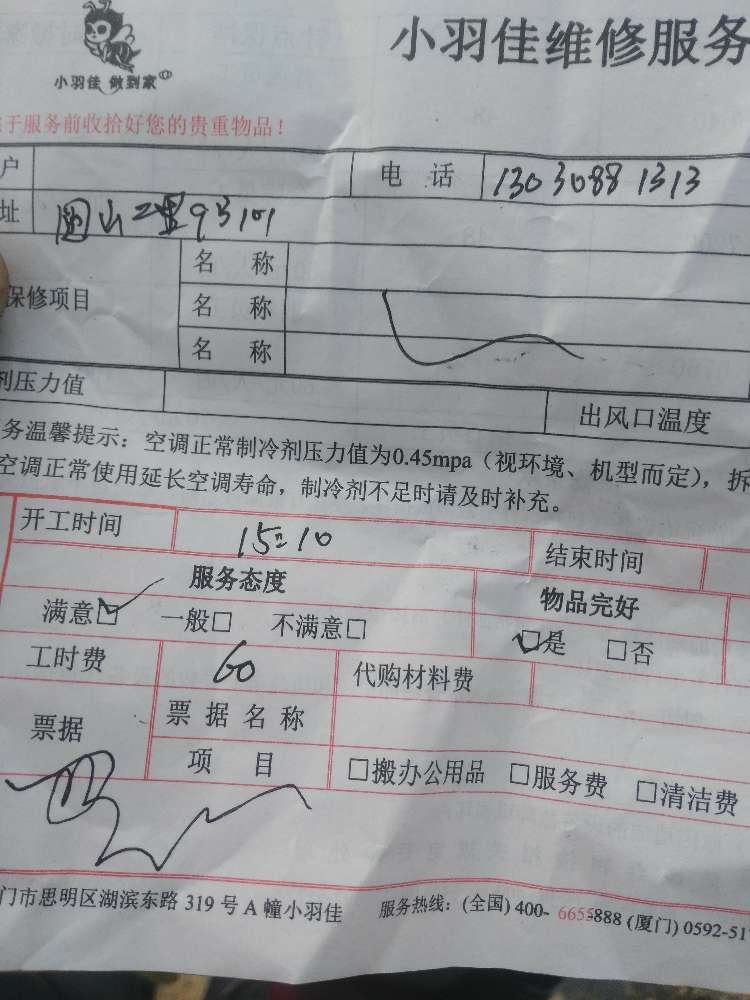 小羽佳 做到家
小羽佳维修服务
于服务前收拾好您的贵重物品!
户 电 话 13030881313
址 园山二里93101
名 称
保修项目 名 称
名 称
剂压力值 出风口温度
务温馨提示:空调正常制冷剂压力值为0.45mpa(视环境、机型而定),拆
空调正常使用延长空调寿命,制冷剂不足时请及时补充。
开工时间 15:10 结束时间
服务态度 物品完好
满意☑ 一般□ 不满意□ ☑是 □否
工时费 60 代购材料费
票据 票 据 名 称
项 目 □搬办公用品 □服务费 □清洁费
门市思明区湖滨东路 319 号 A 幢小羽佳 服务热线:(全国) 400- 6655-888 (厦门) 0592-517